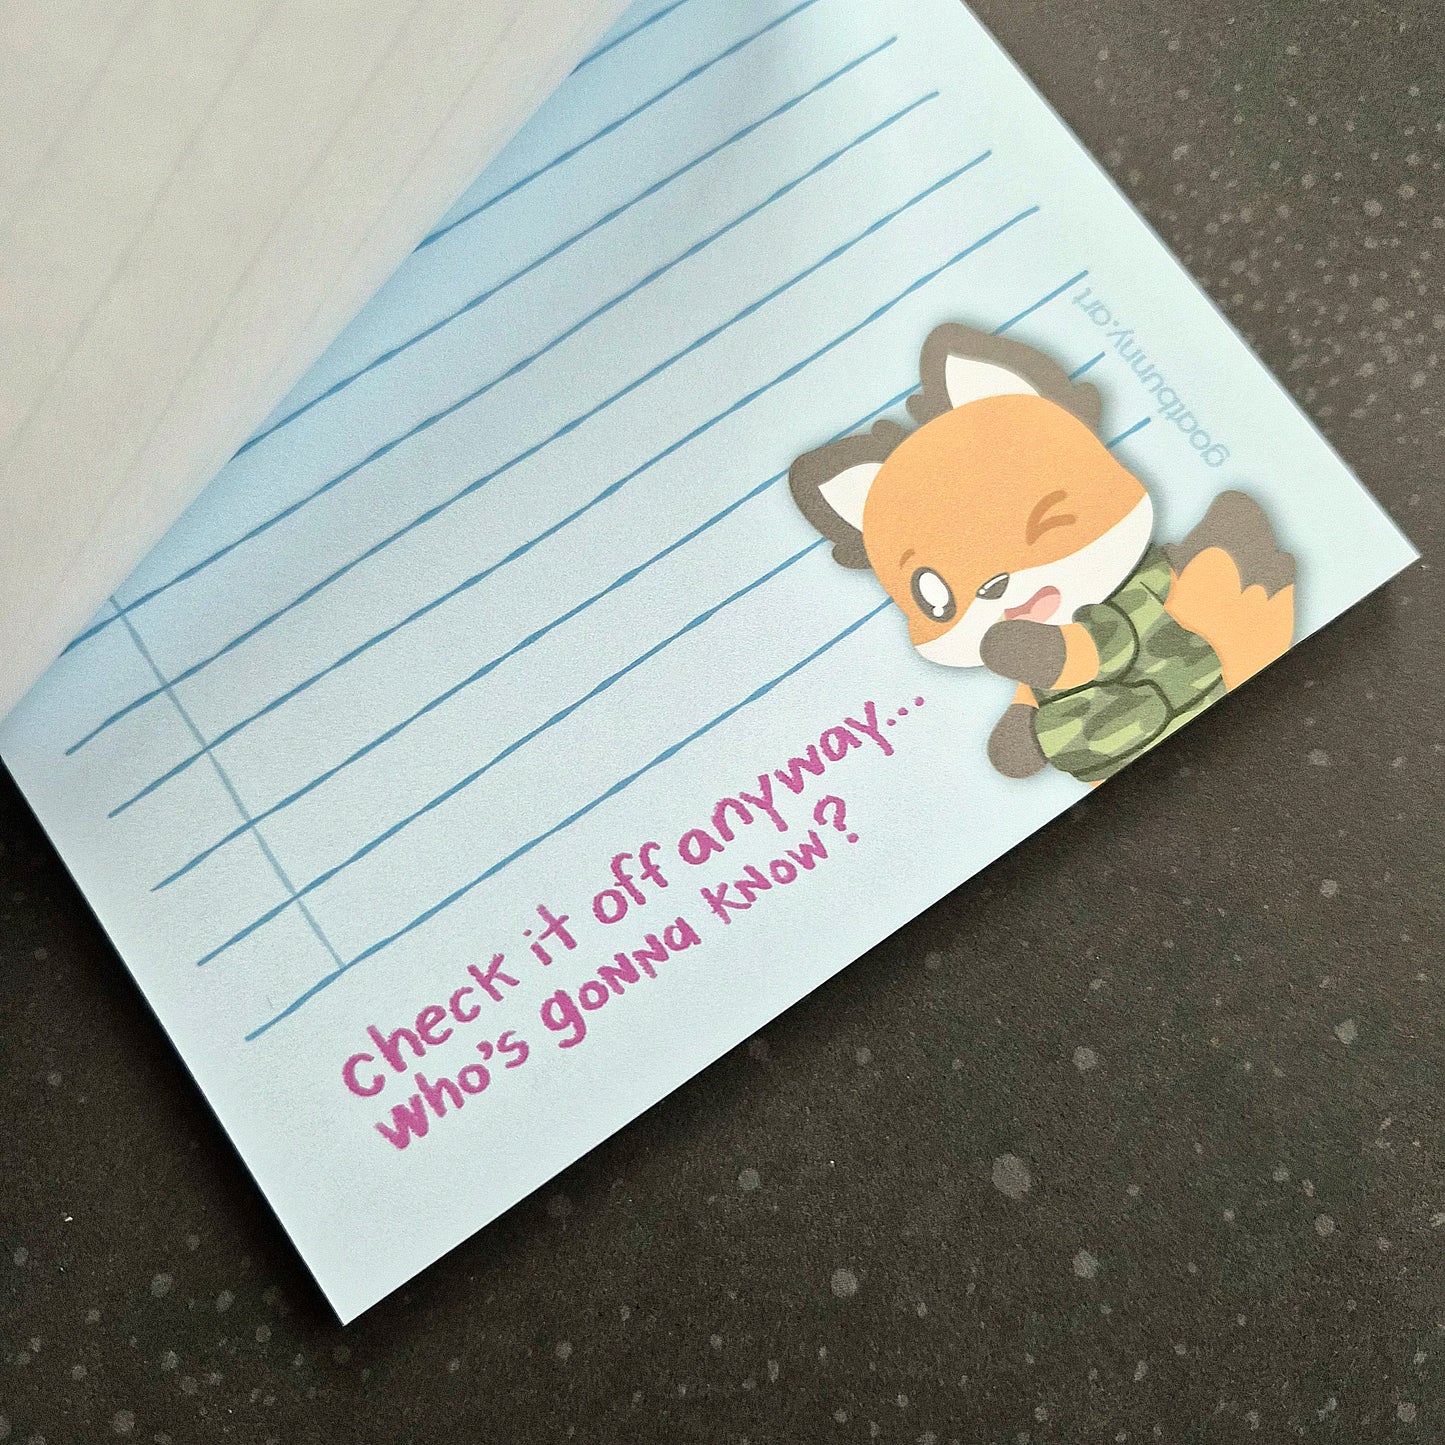 goatbunny.art
check it off anyway...
who's gonna know?